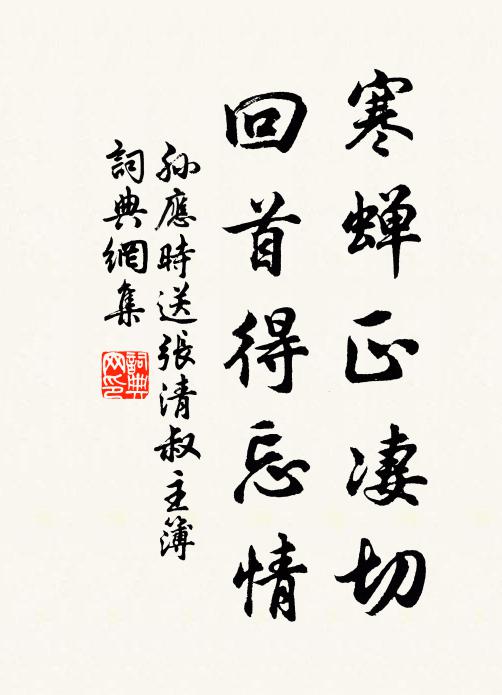 寒蝉正凄切
回首得忘情
孫應時送張清叔主簿
詞典網集
詞典网印